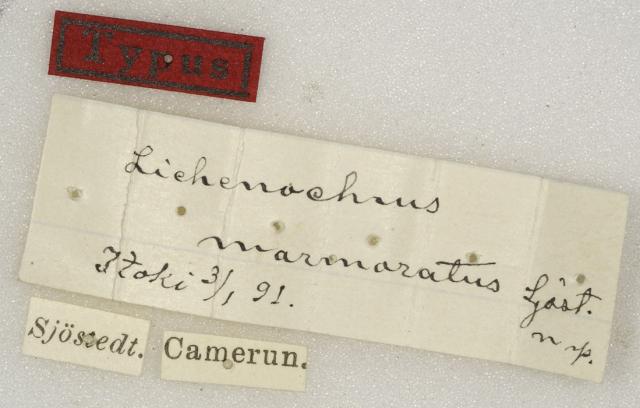 Typus
Lichenochrus
marmoratus Sjöst.
n sp.
Itoki 3/1 91.
Sjöstedt.
Camerun.